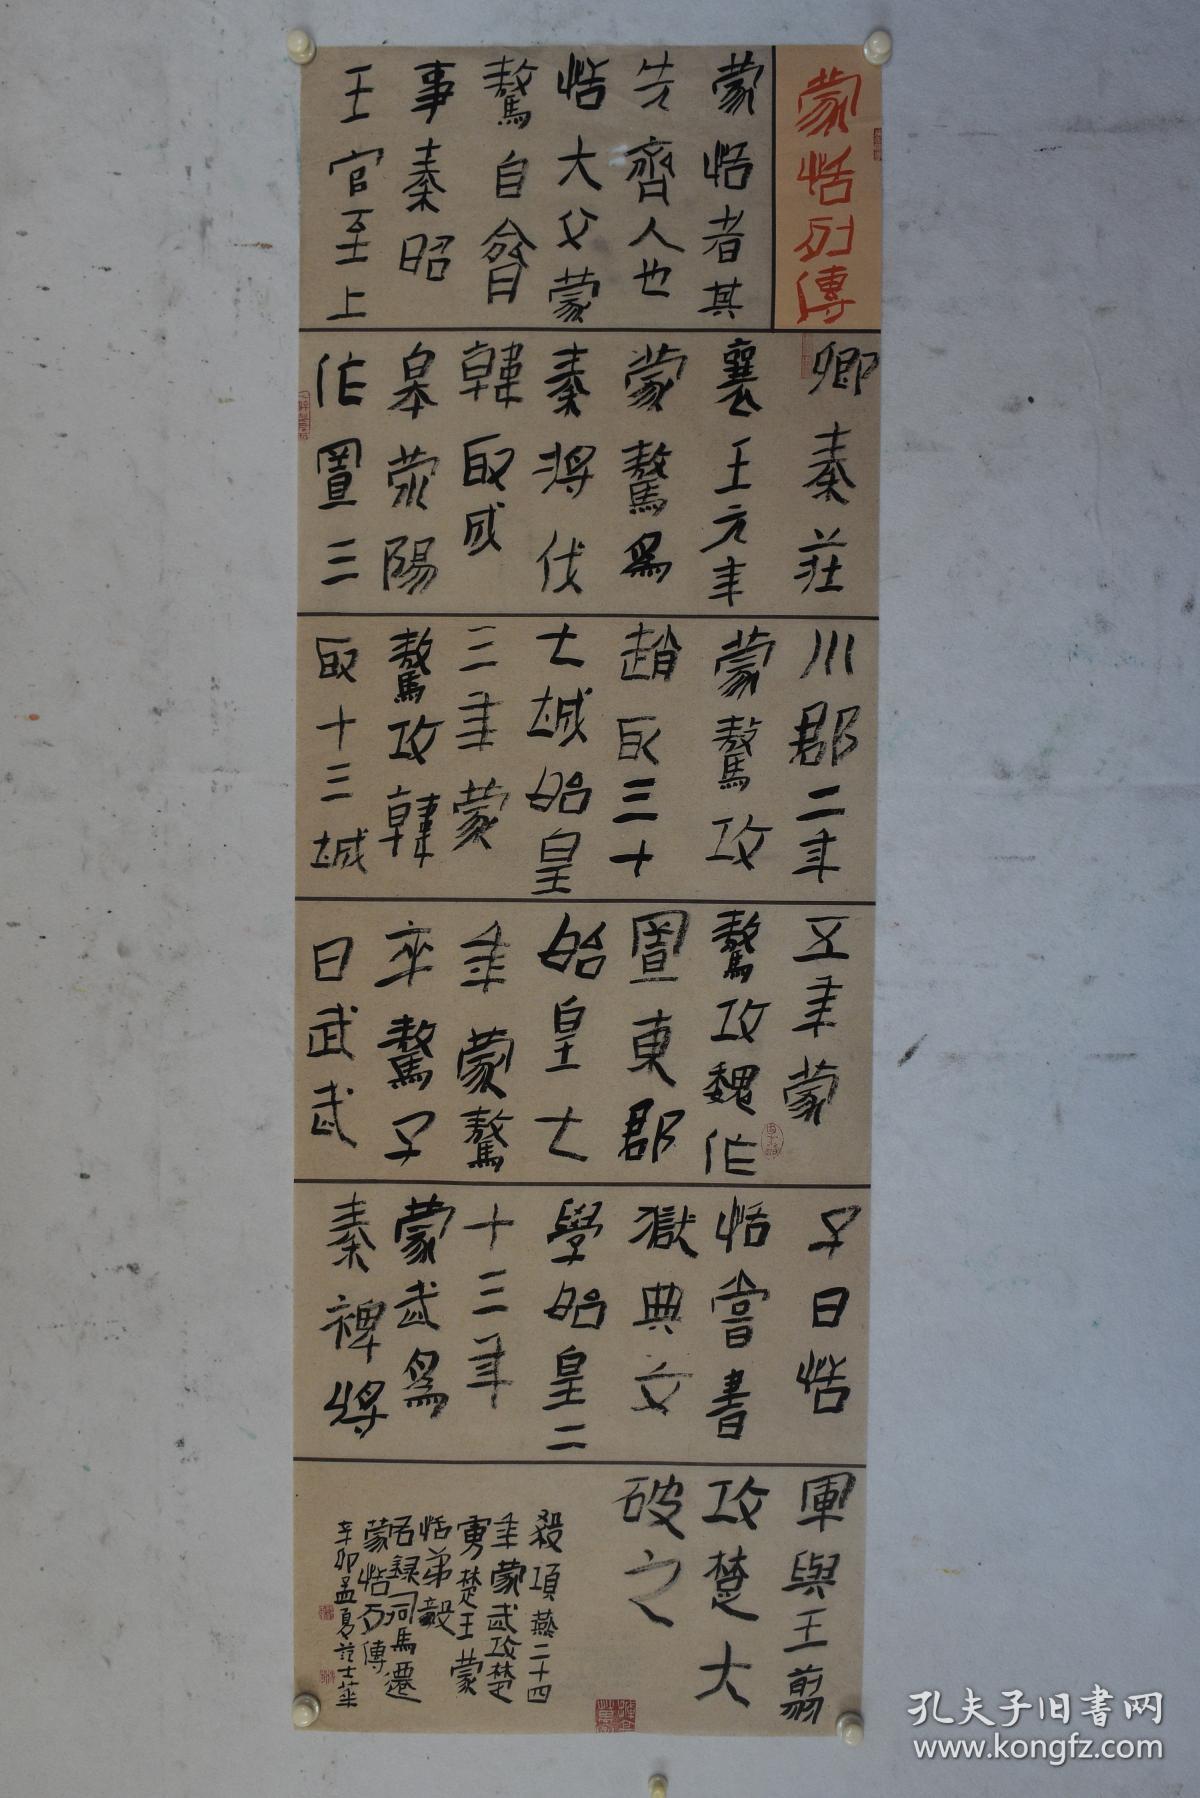 蒙恬列傳
蒙恬者其
先齊人也
恬大父蒙
驁自齊
事秦昭
王官至上
卿秦莊
襄王元年
蒙驁爲
秦將伐
韓取成
皋滎陽
作置三
川郡二年
蒙驁攻
趙取三十
七城始皇
三年蒙
驁攻韓
取十三城
五年蒙
驁攻魏作
置東郡
始皇七
年蒙驁
卒驁子
曰武武
子曰恬
恬嘗書
獄典文
學始皇二
十三年
蒙武爲
秦裨將
軍與王翦
攻楚大
破之
殺項燕二十四
年蒙武攻楚
虜楚王蒙
恬弟毅
右錄司馬遷
蒙恬列傳
辛卯孟夏范士華
孔夫子旧书网
www.kongfz.com